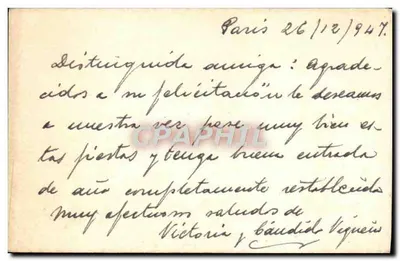 Paris 26/12/947.
Distinguida amiga: Agrade-
cidos a su felicitación le deseamos
a nuestra vez pase muy bien es-
tas fiestas y tenga buena entrada
de año completamente restablecida
muy afectuosos saludos de
Victoria y Cándido
CPAPHIL